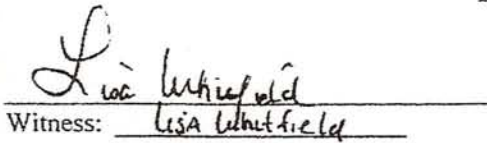 Lisa Whitfield
Witness: Lisa Whitfield